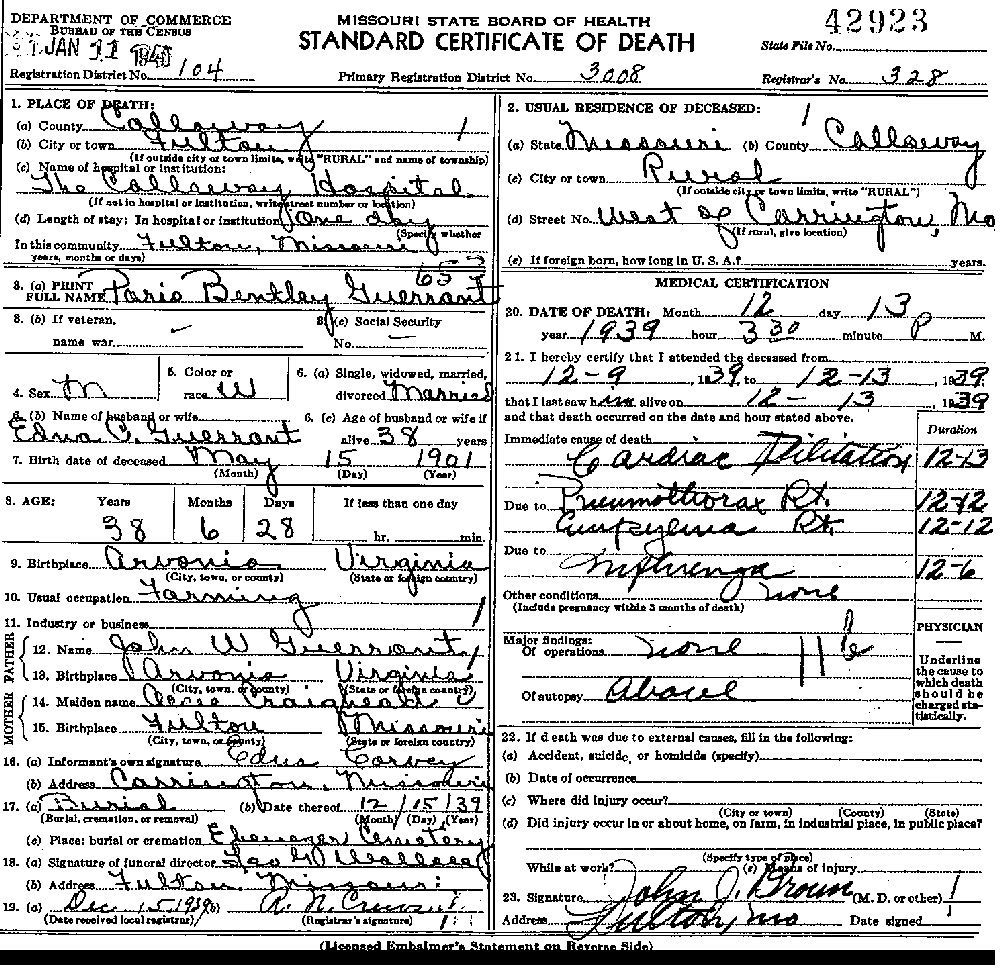 DEPARTMENT OF COMMERCE
BUREAU OF THE CENSUS
JAN 11 1940
Registration District No. 104
MISSOURI STATE BOARD OF HEALTH
STANDARD CERTIFICATE OF DEATH
Primary Registration District No. 3008
42923
State File No.
Registrar's No. 328
1. PLACE OF DEATH:
(a) County Callaway 1
(b) City or town Fulton
(If outside city or town limits, write "RURAL" and name of township)
(c) Name of hospital or institution:
The Callaway Hospital
(If not in hospital or institution, write street number or location)
(d) Length of stay: In hospital or institution One day
(Specify whether
In this community Fulton, Missouri
years, months or days)
653
3. (a) PRINT FULL NAME Paris Bentley Guerrant
3. (b) If veteran, name war. –
3. (c) Social Security No. –
4. Sex M
5. Color or race W
6. (a) Single, widowed, married, divorced Married
6. (b) Name of husband or wife Edna C. Guerrant
6. (c) Age of husband or wife if alive 38 years
7. Birth date of deceased May 15 1901
(Month) (Day) (Year)
8. AGE: Years Months Days If less than one day
38 6 28 hr. min.
9. Birthplace Arvonia Virginia
(City, town, or county) (State or foreign country)
10. Usual occupation Farming
11. Industry or business 1
FATHER
12. Name John W Guerrant
13. Birthplace Arvonia Virginia
(City, town, or county) (State or foreign country)
MOTHER
14. Maiden name Craighead
15. Birthplace Fulton Missouri
(City, town, or county) (State or foreign country)
16. (a) Informant's own signature Edna
(b) Address Carrington, Missouri
17. (a) Burial (b) Date thereof 12/15/39
(Burial, cremation, or removal) (Month) (Day) (Year)
(c) Place: burial or cremation Ebenezer Cemetery
18. (a) Signature of funeral director Wallace
(b) Address Fulton, Missouri
19. (a) Dec 15-1939 (b) R. N. Crews
(Date received local registrar) (Registrar's signature)
2. USUAL RESIDENCE OF DECEASED: 1
(a) State Missouri (b) County Callaway
(c) City or town Rural
(If outside city or town limits, write "RURAL")
(d) Street No. West of Carrington, Mo
(If rural, give location)
(e) If foreign born, how long in U. S. A.? years.
MEDICAL CERTIFICATION
20. DATE OF DEATH: Month 12 day 13
year 1939 hour 3 30 minute P M.
21. I hereby certify that I attended the deceased from
12-9 1939 to 12-13, 1939
that I last saw him alive on 12-13, 1939
and that death occurred on the date and hour stated above.
Duration
Immediate cause of death
Cardiac Dilitation 12-13
Due to Pneumothorax Rt. 12-12
Empyema Rt. 12-12
Due to
Influenza 12-6
Other conditions none
(Include pregnancy within 3 months of death)
Major findings:
Of operations none
11 b
Of autopsy
PHYSICIAN
Underline the cause to which death should be charged statistically.
22. If death was due to external causes, fill in the following:
(a) Accident, suicide, or homicide (specify)
(b) Date of occurrence
(c) Where did injury occur?
(City or town) (County) (State)
(d) Did injury occur in or about home, on farm, in industrial place, in public place?
(Specify type of place)
While at work? (e) Means of injury
23. Signature John J. Brown (M. D. or other) 1
Address Fulton, Mo Date signed
(Licensed Embalmer's Statement on Reverse Side)